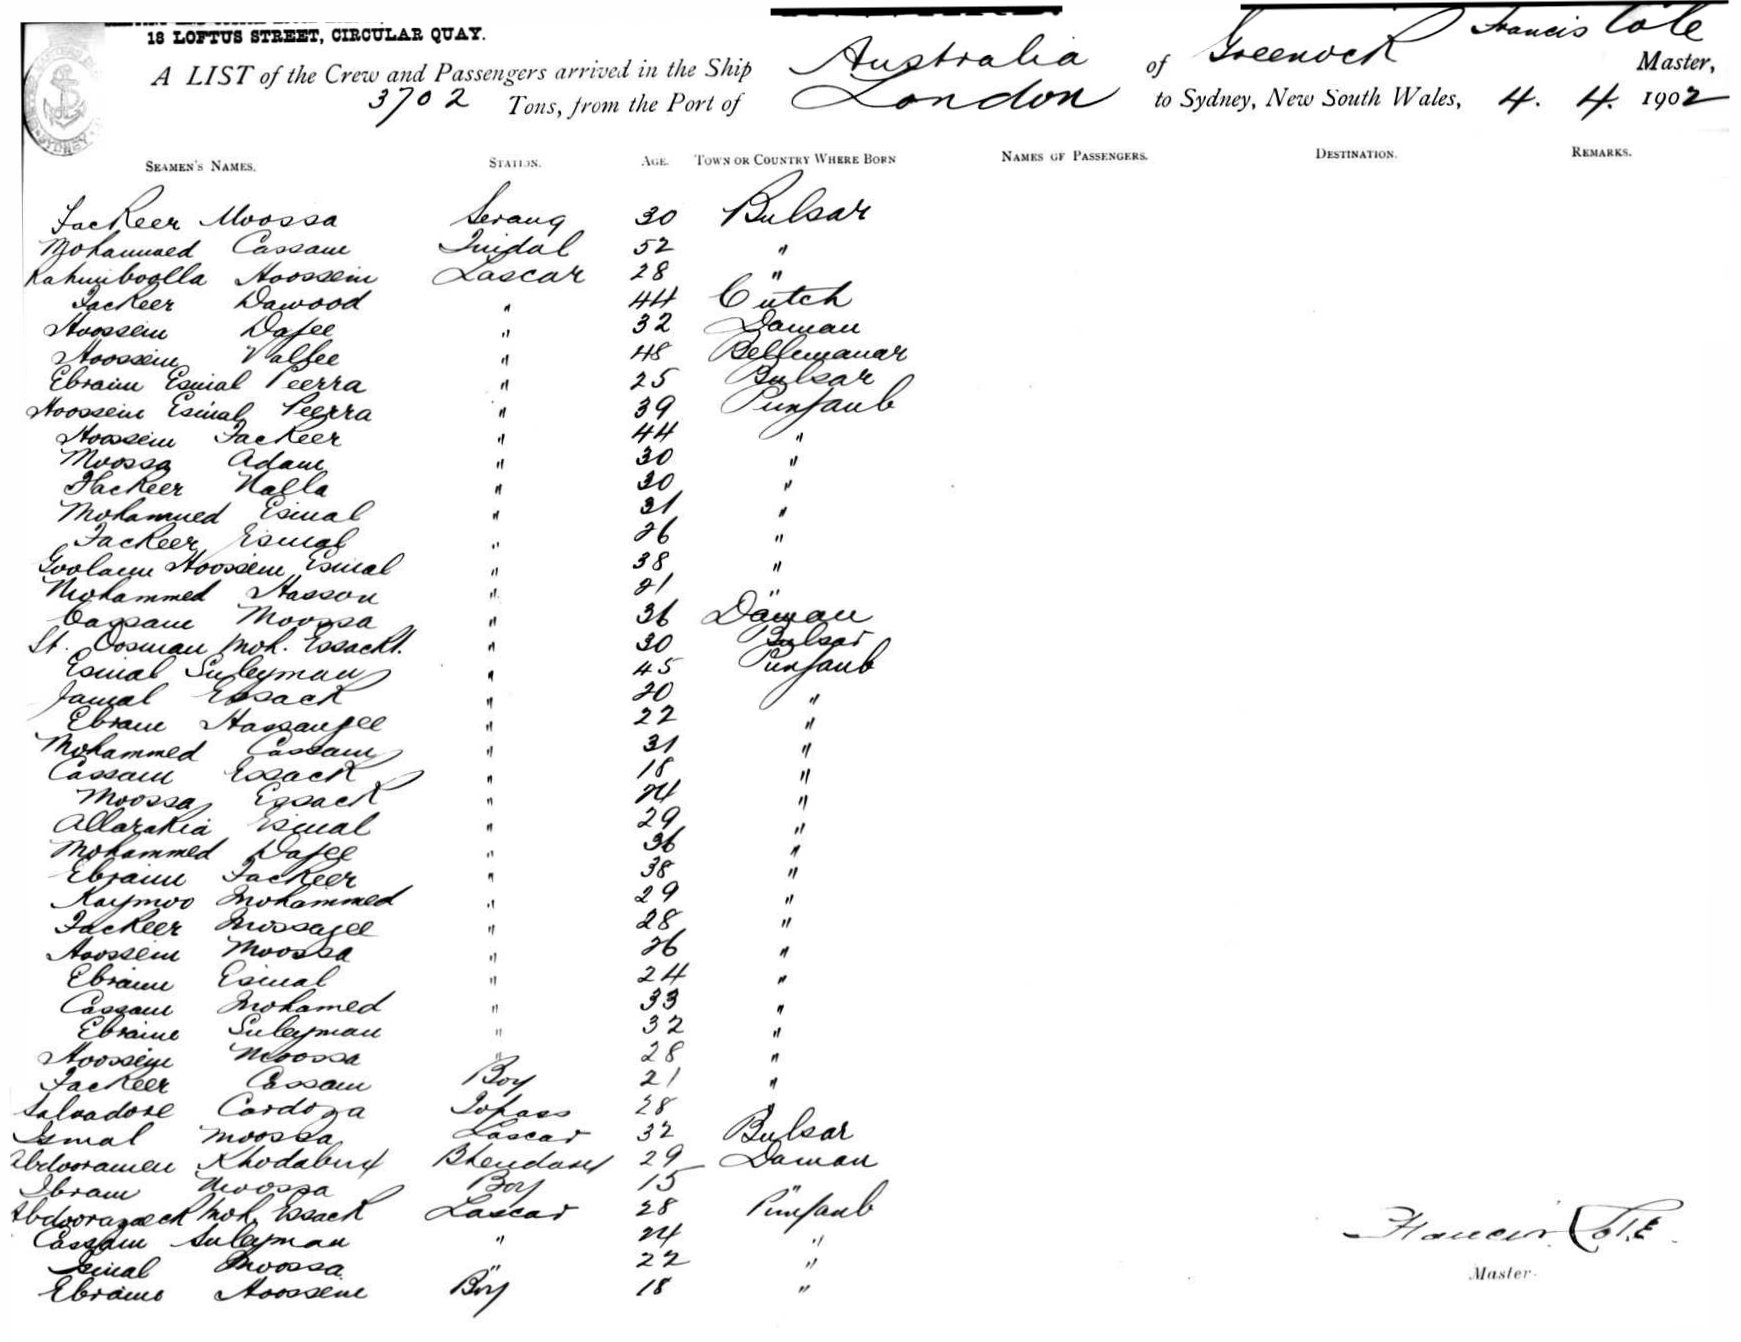 18 LOFTUS STREET, CIRCULAR QUAY.
A LIST of the Crew and Passengers arrived in the Ship Australia of Greenock Francis Cole Master,
3702 Tons, from the Port of London to Sydney, New South Wales, 4. 4. 1902
SEAMEN'S NAMES. STATION. AGE. TOWN OR COUNTRY WHERE BORN NAMES OF PASSENGERS. DESTINATION. REMARKS.
Fackeer Moossa Serang 30 Bulsar
Mohammed Cassam Tindal 52 "
Rahimboolla Hoossein Lascar 28 "
Fackeer Dawood " 44 Cutch
Hoossein Dajee " 32 Daman
Hoossein Valjee " 48 Bellemanar
Ebraim Esmal Peerra " 25 Bulsar
Hoossein Esmal Peerra " 39 Punjaub
Hoossein Fackeer " 44 "
Moossa Adam " 30 "
Fackeer Nalla " 30 "
Mohammed Esmal " 31 "
Fackeer Esmal " 26 "
Goolam Hoossein Esmal " 38 "
Mohammed Hasson " 21 "
Cassam Moossa " 36 Daman
St. Oosman Moh. Essackt. " 30 Bulsar
Esmal Suleyman " 45 Punjaub
Jamal Essack " 20 "
Ebram Hassanjee " 22 "
Mohammed Cassam " 31 "
Cassam Essack " 18 "
Moossa Essack " 24 "
Allarakia Esmal " 29 "
Mohammed Dajee " 36 "
Ebraim Fackeer " 38 "
Kaymoo Mohammed " 29 "
Fackeer Mossajee " 28 "
Hoossein Moossa " 26 "
Ebraim Esmal " 24 "
Cassam Mohamed " 33 "
Ebraim Suleyman " 32 "
Hoossein Moossa " 28 "
Fackeer Cassam Boy 21 "
Salvadore Cardoza Topass 28 "
Ismal Moossa Lascar 32 Bulsar
Abdooramen Khodabux Bhendary 29 Daman
Ibram Moossa Boy 15 "
Abdoorazack Moh. Essack Lascar 28 Punjaub
Cassam Suleyman " 24 "
Ismal Moossa " 22 "
Ebraim Hoossein Boy 18 "
Francis Cole
Master.